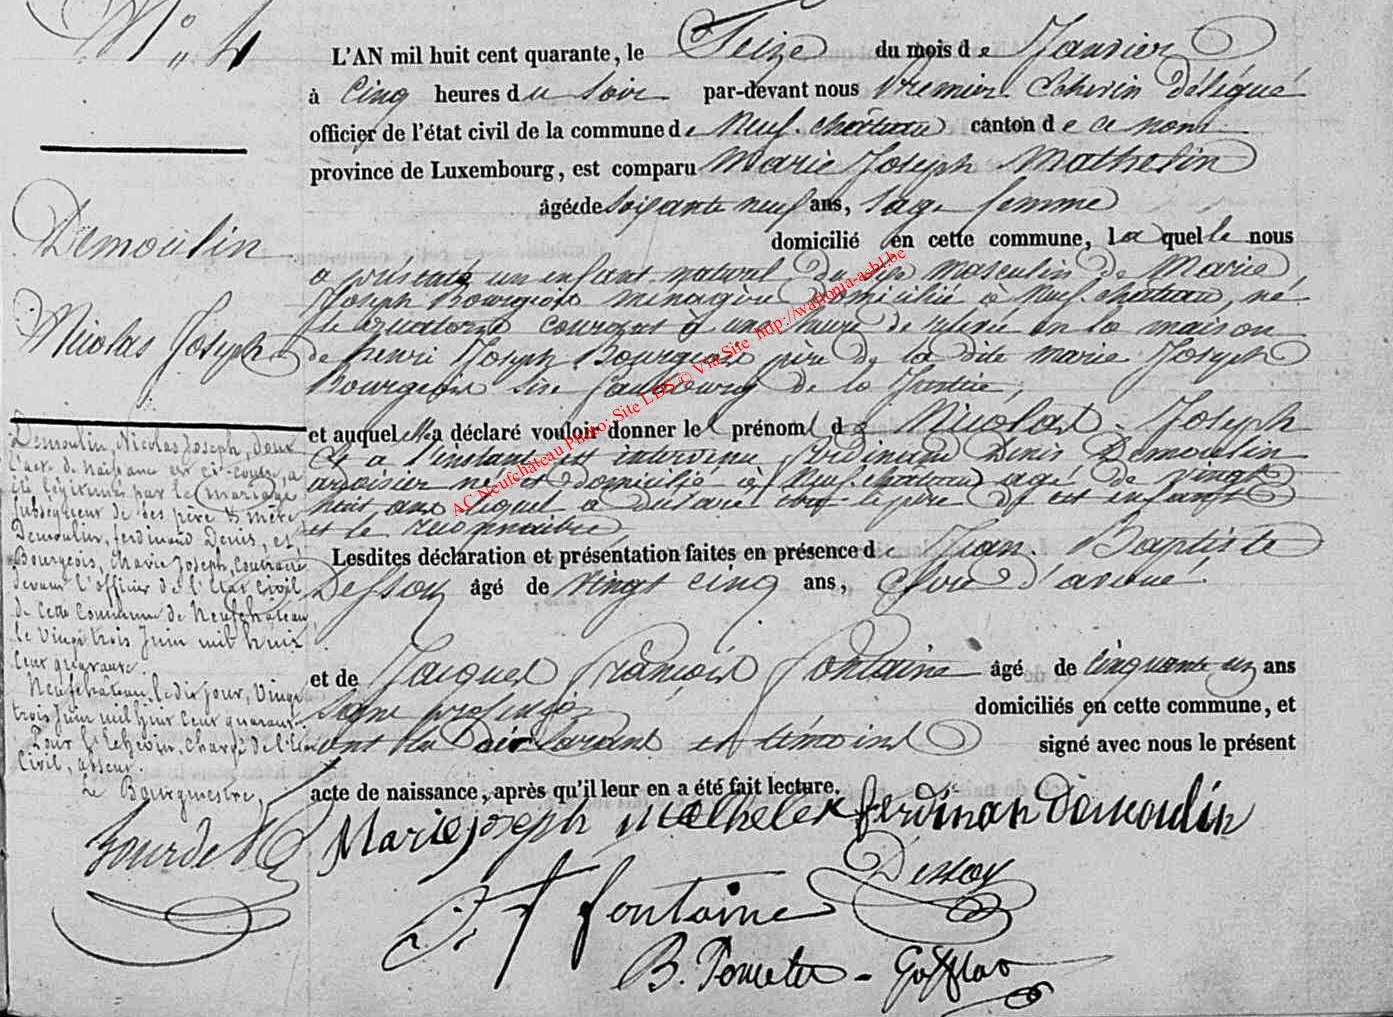 N° 4
L'AN mil huit cent quarante, le Seize du mois de Janvier
à Cinq heures du Soir par-devant nous Premier Echevin délégué
officier de l'état civil de la commune de Neufchâteau canton de ce nom
province de Luxembourg, est comparu Marie Joseph Mathelin
âgée de Soixante neuf ans, Sage femme
domicilié en cette commune, laquelle nous
a présenté un enfant naturel du sexe masculin de Marie
Joseph Bourgeois ménagère domiciliée à Neufchâteau, né
le quatorze courant à une heure de relevé en la maison
de henri Joseph Bourgeois père de la dite marie Joseph
Bourgeois sise faubourg de la Justice,
et auquel elle a déclaré vouloir donner le prénom de Nicolas-Joseph
Et à l'instant est intervenu ferdinand Denis Demoulin
ardoisier né et domicilié à Neufchâteau agé de vingt
huit ans lequel a déclaré être le père de cet enfant
et le reconnaître,
Lesdites déclaration et présentation faites en présence de Jean Baptiste
Dessoy âgé de vingt cinq ans, Clerc d'avoué
et de Jacques François Fontaine âgé de cinquante un ans
Sans profession domiciliés en cette commune, et
ont la déclarante et témoins signé avec nous le présent
acte de naissance, après qu'il leur en a été fait lecture.
Marie joseph Mathelin ferdinan Demoulin
Dessoy
J. f fontaine
Demoulin
Nicolas Joseph
Demoulin, Nicolas Joseph, dont
l'acte de Naissance est ci-contre, a
été légitimé par le mariage
subséquent de ses père & mère
Demoulin, ferdinand Denis, et
Bourgeois, Marie Joseph, Contracté
devant l'officier de l'Etat Civil
de cette Commune de Neufchâteau,
le Vingt trois Juin mil huit
Cent quarante
Neufchâteau, le dit jour, Vingt
trois Juin mil huit Cent quarante.
Pour l'Echevin, Chargé de l'Etat
Civil, absent.
Le Bourgmestre,
AC Neufchâteau Photo: Site LDS © Via Site http://wallonia-asbl.be